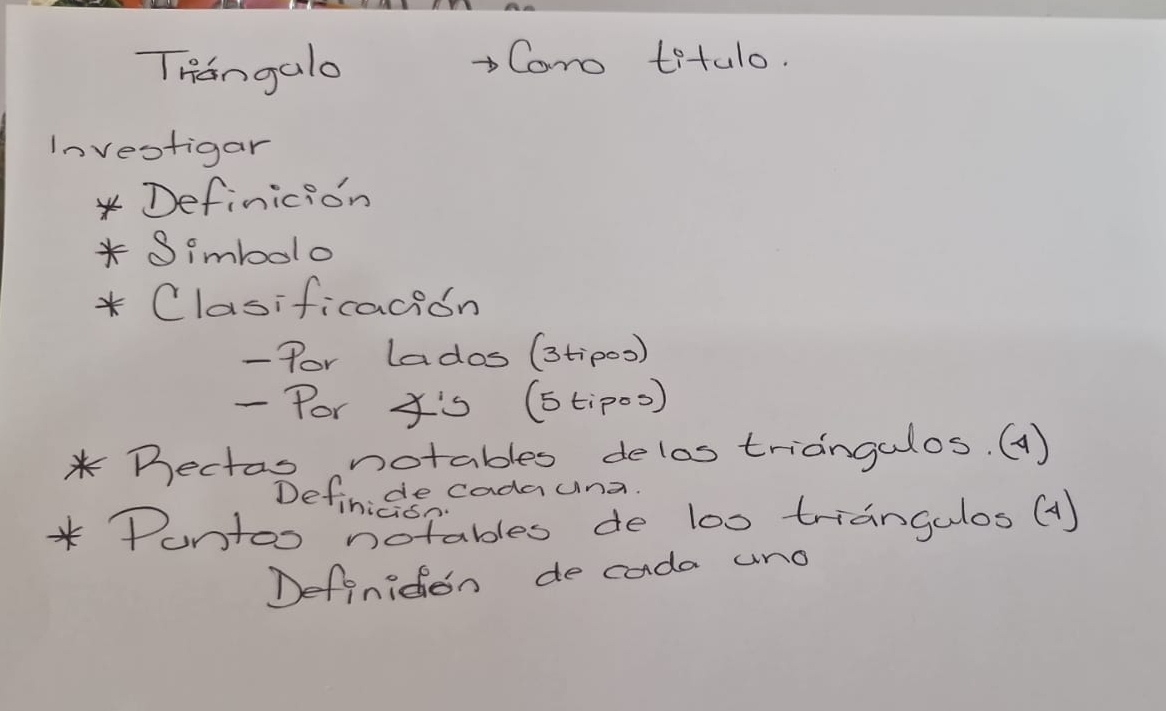 Triángulo → Como titulo.
Investigar
* Definición
* Simbolo
* Clasificación
- Por lados (3 tipos)
- Por ∡'s (5 tipos)
* Rectas notables de los triángulos. (4)
Definición de cada una.
* Puntos notables de los triángulos (4)
Definición de cada uno